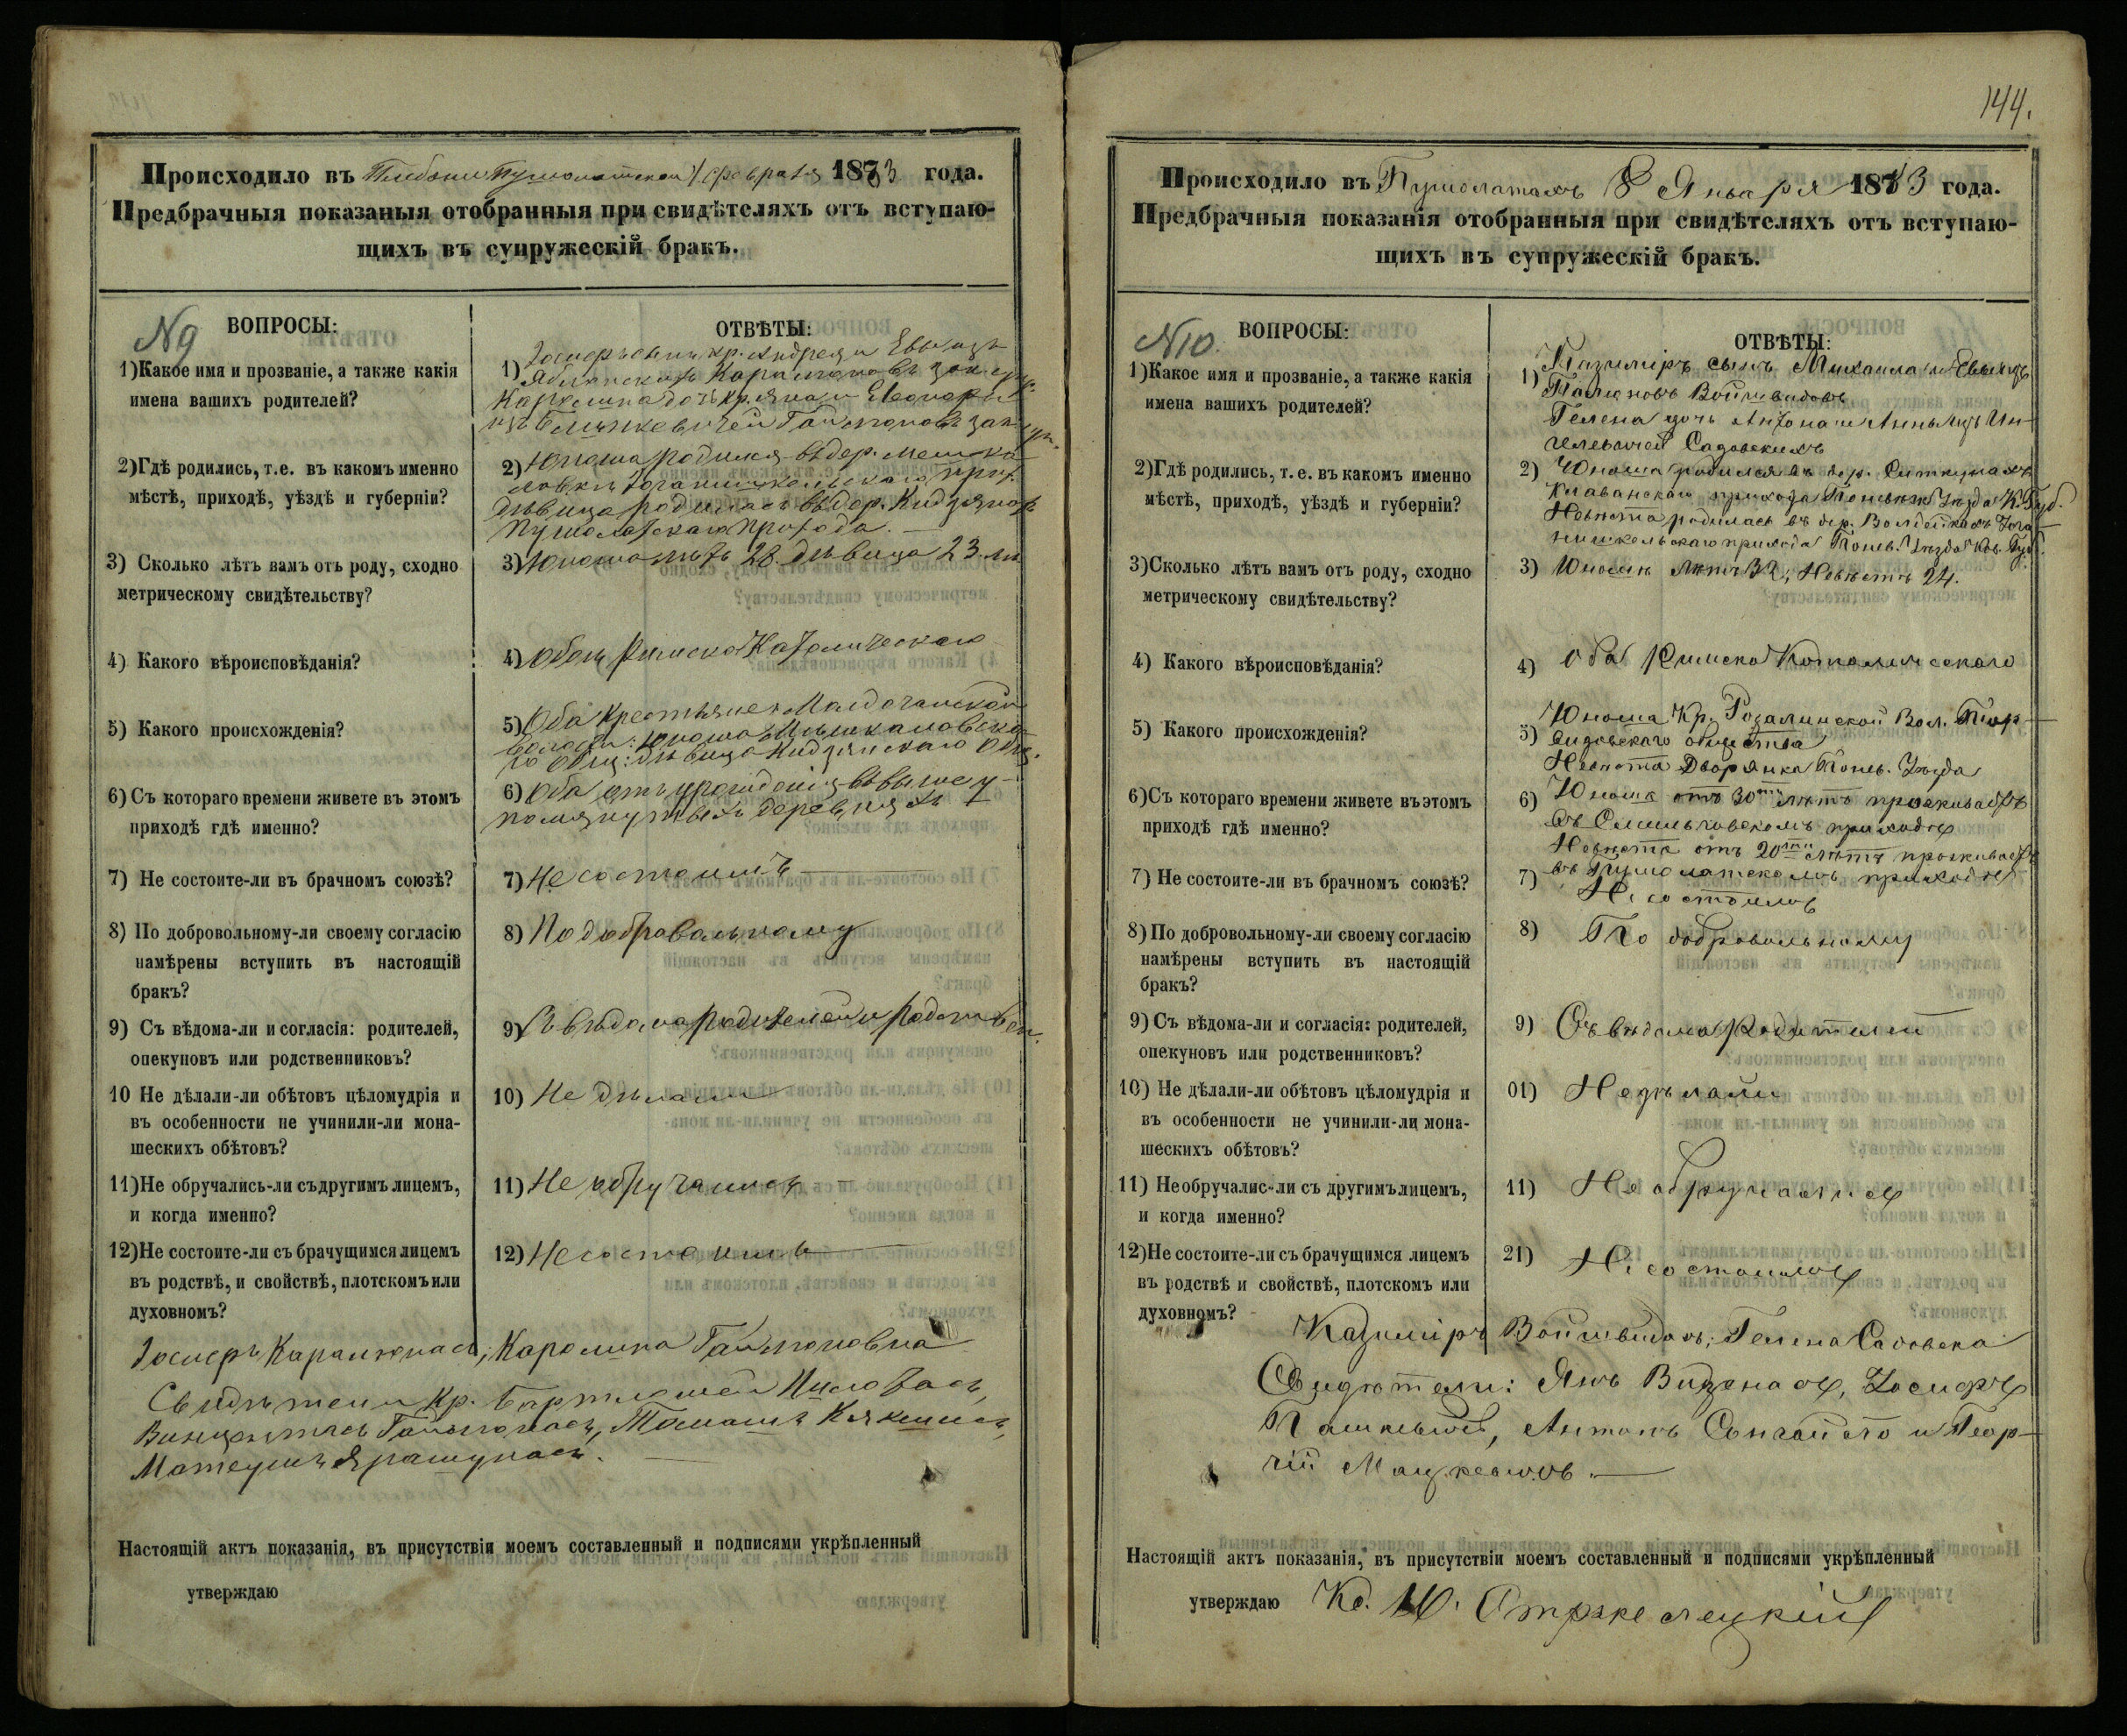 Происходило въ Плебаніи Пушолатской 1 февраля 1883 года.
Предбрачныя показаныя отобранныя при свидѣтеляхъ отъ вступаю-
щихъ въ супружескій бракъ.
N9 ВОПРОСЫ:
1)Какое имя и прозваніе, а также какія
имена вашихъ родителей?
2)Гдѣ родились, т.е. въ какомъ именно
мѣстѣ, приходѣ, уѣздѣ и губерніи?
3) Сколько лѣтъ вамъ отъ роду, сходно
метрическому свидѣтельству?
4) Какого вѣроисповѣданія?
5) Какого происхожденія?
6)Съ котораго времени живете въ этомъ
приходѣ гдѣ именно?
7) Не состоите-ли въ брачномъ союзѣ?
8) По добровольному-ли своему согласію
намѣрены вступить въ настоящій
бракъ?
9) Съ вѣдома-ли и согласія: родителей,
опекуновъ или родственниковъ?
10 Не дѣлали-ли обѣтовъ цѣломудрія и
въ особенности не учинили-ли мона-
шескихъ обѣтовъ?
11)Не обручались-ли съ другимъ лицемъ,
и когда именно?
12)Не состоите-ли съ брачущимся лицемъ
въ родствѣ, и свойствѣ, плотскомъ или
духовномъ?
ОТВѢТЫ:
Іосифъ сынъ кр. Андрея и Евы изъ
1)
Каролина дочь кр. Яна и Елеоноры
2) Юноша родился въ дер.
дѣвица родилась въ дер.
Пушолатскаго прихода.
3) Юноша лѣтъ 28. дѣвица 23. лѣ
4) Обои Римско Католическаго
5) Оба крестьяне
6) Оба отъ урожденія въ выше у-
помянутыхъ деревняхъ
7) Не состоимъ
8) По добровольному
9) Съ вѣдома родителей и родствен.
10) Не дѣлали
11) Не обручались
12) Не состоимъ
Іосифъ Каралюнасъ, Каролина Гальмоновна
Свидѣтели Кр.
Винцентасъ
Матеушъ Ярашунасъ.
Настоящій актъ показанія, въ присутствіи моемъ составленный и подписями укрѣпленный
утверждаю
144.
Происходило въ Пушолатахъ 8 Января 1883 года.
Предбрачныя показанія отобранныя при свидѣтеляхъ отъ вступаю-
щихъ въ супружескій бракъ.
N10. ВОПРОСЫ:
1)Какое имя и прозваніе, а также какія
имена вашихъ родителей?
2)Гдѣ родились, т. е. въ какомъ именно
мѣстѣ, приходѣ, уѣздѣ и губерніи?
3)Сколько лѣтъ вамъ отъ роду, сходно
метрическому свидѣтельству?
4) Какого вѣроисповѣданія?
5) Какого происхожденія?
6)Съ котораго времени живете въ этомъ
приходѣ гдѣ именно?
7) Не состоите-ли въ брачномъ союзѣ?
8) По добровольному-ли своему согласію
намѣрены вступить въ настоящій
бракъ?
9) Съ вѣдома-ли и согласія: родителей,
опекуновъ или родственниковъ?
10) Не дѣлали-ли обѣтовъ цѣломудрія и
въ особенности не учинили-ли мона-
шескихъ обѣтовъ?
11) Не обручалис-ли съ другимъ лицемъ,
и когда именно?
12)Не состоите-ли съ брачущимся лицемъ
въ родствѣ и свойствѣ, плотскомъ или
духовномъ?
ОТВѢТЫ:
Казиміръ сынъ Михаила и Евы изъ
1) Войшвидовъ
Гелена дочь Антона и Анны изъ Ин-
Садовскихъ
2) Юноша родился въ дер.
прихода Понев. Уѣзда К. Губ.
Невѣста родилась въ дер.
прихода Понев. Уѣзда Ков. Губ.
3) Юношѣ лѣтъ 32; Невѣстѣ 24.
4) Оба Римско Католическаго
Юноша Кр. Розалинской Вол.
5) общества
Невѣста Дворянка Понев. Уѣзда
6) Юноша отъ 30ти лѣтъ проживаетъ
въ Смильговскомъ приходѣ
Невѣста отъ 20ти лѣтъ проживаетъ
7) въ Пушолатскомъ приходѣ
Не состоимъ
8) По добровольному
9) Съ вѣдома Родителей
01) Не дѣлали
11) Не обручались
21) Не состоимъ
Казиміръ Войшвидовъ; Гелена Садовска
Свидѣтели: Янъ Визенасъ, Іосифъ
Пашкевичъ, Антонъ и Геор-
гій Мацкевичъ.
Настоящій актъ показанія, въ присутствіи моемъ составленный и подписями укрѣпленный
утверждаю Кс.